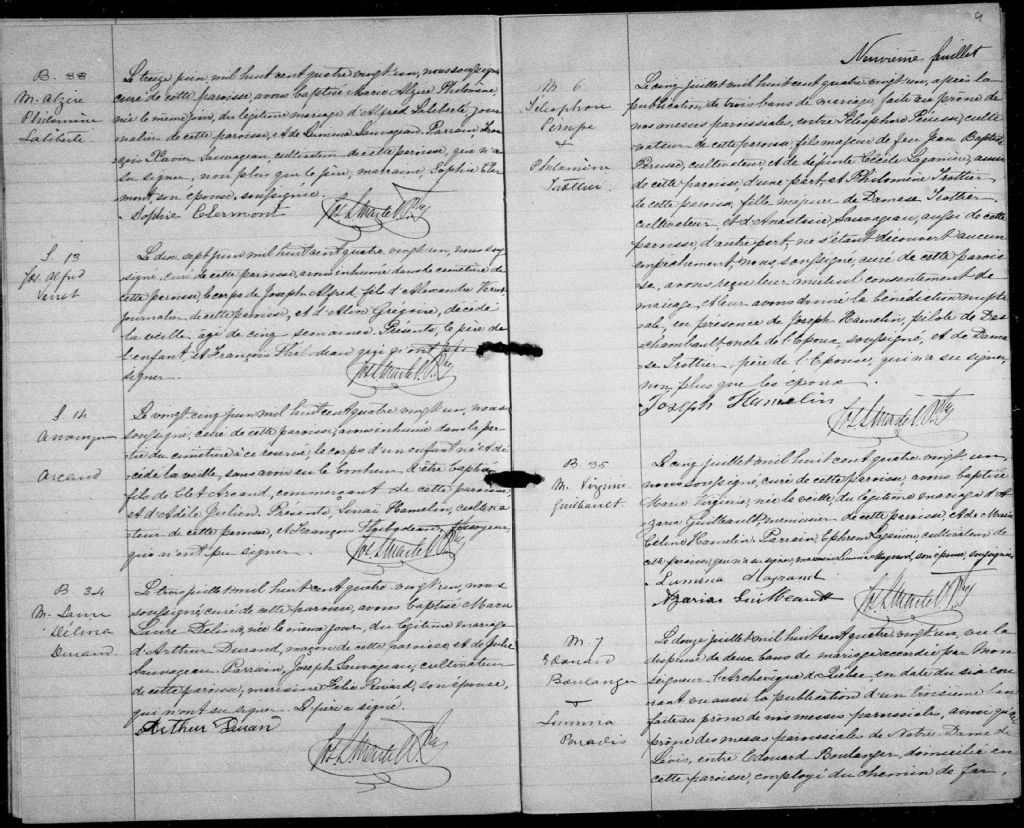 B. 33
M. Alzire
Philomène
Laliberté
Le treize juin mil huit cent quatre vingt un, nous soussigné
curé de cette paroisse, avons baptisé Marie Alzire Philomène,
née le même jour, du légitime mariage d'Alfred Laliberté jour
nalier de cette paroisse, et de Lumina Sauvageau. Parrain Fran
çois Xavier Sauvageau cultivateur de cette paroisse, qui n'a
su signer, non plus que le père, marraine, Sophie Cler
mont, son épouse, soussignée.
Sophie Clermont
S. 13
Jos. Alfred
Le dix sept juin mil huit cent quatre vingt un, nous sous
signé, curé de cette paroisse, avons inhumé dans le cimetière de
cette paroisse, le corps de Joseph Alfred, fils d'Alexandre
journalier de cette paroisse, et d'Alvin Grégoire, décédé
la veille, âgé de cinq semaines. Présents, le père de
l'enfant, et François Thibodeau qui n'ont pu
signer.
S. 14
Anonyme
Arcand
Le vingt cinq juin mil huit cent quatre vingt un, nous
soussigné, curé de cette paroisse, avons inhumé dans la par
tie du cimetière à ce reservé, le corps d'un enfant né et dé
cédé la veille, sans avoir eu le bonheur d'être baptisé
fils de Clet Arcand, commerçant de cette paroisse,
et d'Adèle Julien. Présents, Hamelin, cultiva
teur de cette paroisse, et François Thibodeau, fossoyeur,
qui n'ont pu signer.
B 34
M. Laure
Délina
Durand
Le trois juillet mil huit cent quatre vingt un, nous
soussigné curé de cette paroisse, avons baptisé Marie
Laure Délina, née le même jour, du légitime mariage
d'Arthur Durand, maçon de cette paroisse, et de Julie
Sauvageau. Parrain, Joseph Sauvageau, cultivateur
de cette paroisse, marraine Rivard, son épouse,
qui n'ont su signer. Le père a signé.
Arthur Duran
9
Neuvième feuillet
M. 6
Télesphore
Perusse
+
Philomène
Trottier
Le cinq juillet mil huit cent quatre vingt un, après la
publication de trois bans de mariage, faite au prône de
nos messes paroissiales, entre Télesphore Perusse, culti
vateur de cette paroisse, fils majeur de feu Jean Baptiste
Perusse, cultivateur, et de défunte Cécile Laganière, aussi
de cette paroisse, d'une part, et Philomène Trottier
de cette paroisse, fille majeure de Damase Trottier
cultivateur, et d'Anastasie Sauvageau, aussi de cette
paroisse, d'autre part, ne s'étant découvert aucun
empêchement, nous, soussigné, curé de cette parois
se, avons reçu leur mutuel consentement de
mariage, et leur avons donné la bénédiction nuptia
le, en présence de Joseph Hamelin, pilote de Des
chambault, oncle de l'Epoux, soussigné, et de Dama
se Trottier, père de l'Epouse, qui n'a su signer,
non plus que les époux.
Joseph Hamelin
B 35
M. Virginie
Guilbault
Le cinq juillet mil huit cent quatre vingt un
nous soussigné, curé de cette paroisse, avons baptisé
Marie Virginie, née la veille du légitime mariage d'A
zarie Guilbault, menuisier de cette paroisse, et de Marie
Céline Hamelin. Parrain, Ephrem cultivateur de
cette paroisse, qui n'a su signer, marraine Lumina Magnand, son épouse, soussignée
Lumina Magnand
Azarias Guilbeault
M. 7
Edouard
Boulanger
+
Lumina
Paradis
Le douze juillet mil huit cent quatre vingt un, vu la
dispense de deux bans de mariage accordée par Mon
seigneur l'Archevêque de Québec, en date du six cou
rant vu aussi la publication d'un troisième ban
faite au prône de nos messes paroissiales, ainsi qu'au
prône des messes paroissiales de Notre-Dame de
Lévis, entre Edouard Boulanger, domicilié en
cette paroisse, employé du chemin de fer,